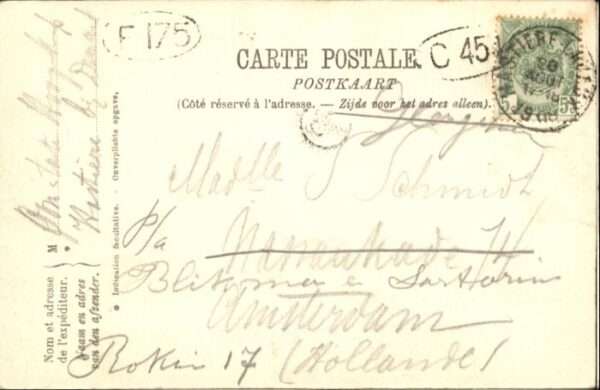 F 175
C 45
CARTE POSTALE.
POSTKAART
(Côté réservé à l'adresse. — Zijde voor het adres alleen.)
HASTIÈRE-LAVAUX
Madlle S Schmidt
P/a
Blikman & Sartorius
Amsterdam
Rokin 17 (Hollande)
Nom et adresse
de l'expéditeur.
Naam en adres
van den afzender.
M
Hastière
● Indication facultative. Onverplichte opgave.